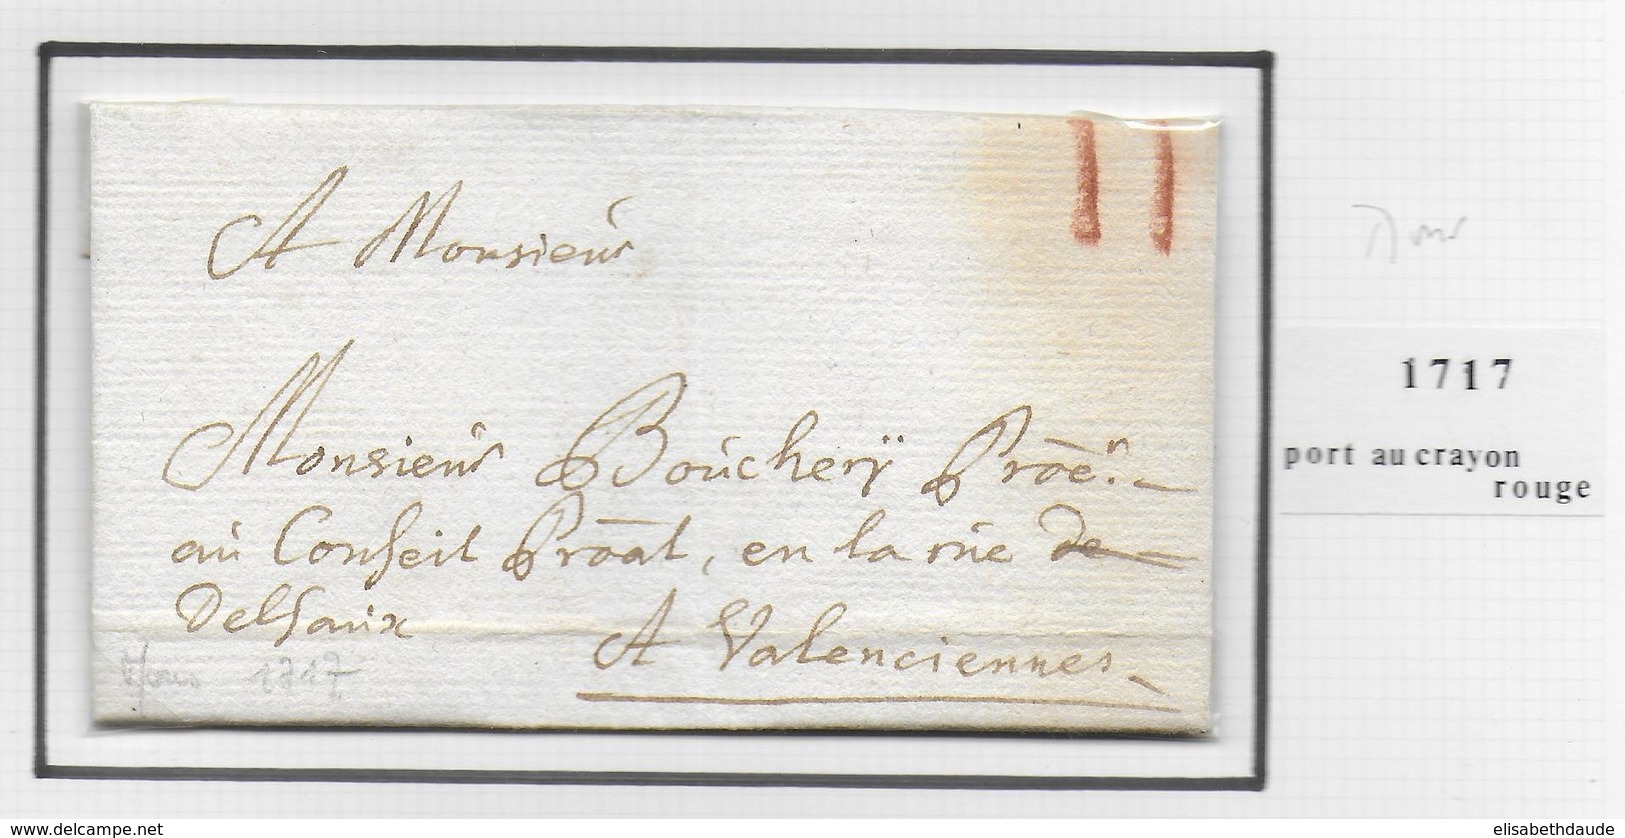 11
A Monsieur
Monsieur Boucherÿ Prōeʳ.
au Conseil Prōal, en la rüe de
Delsaux
A Valenciennes
1717
1717
port au crayon
rouge
www.delcampe.net
elisabethdaude